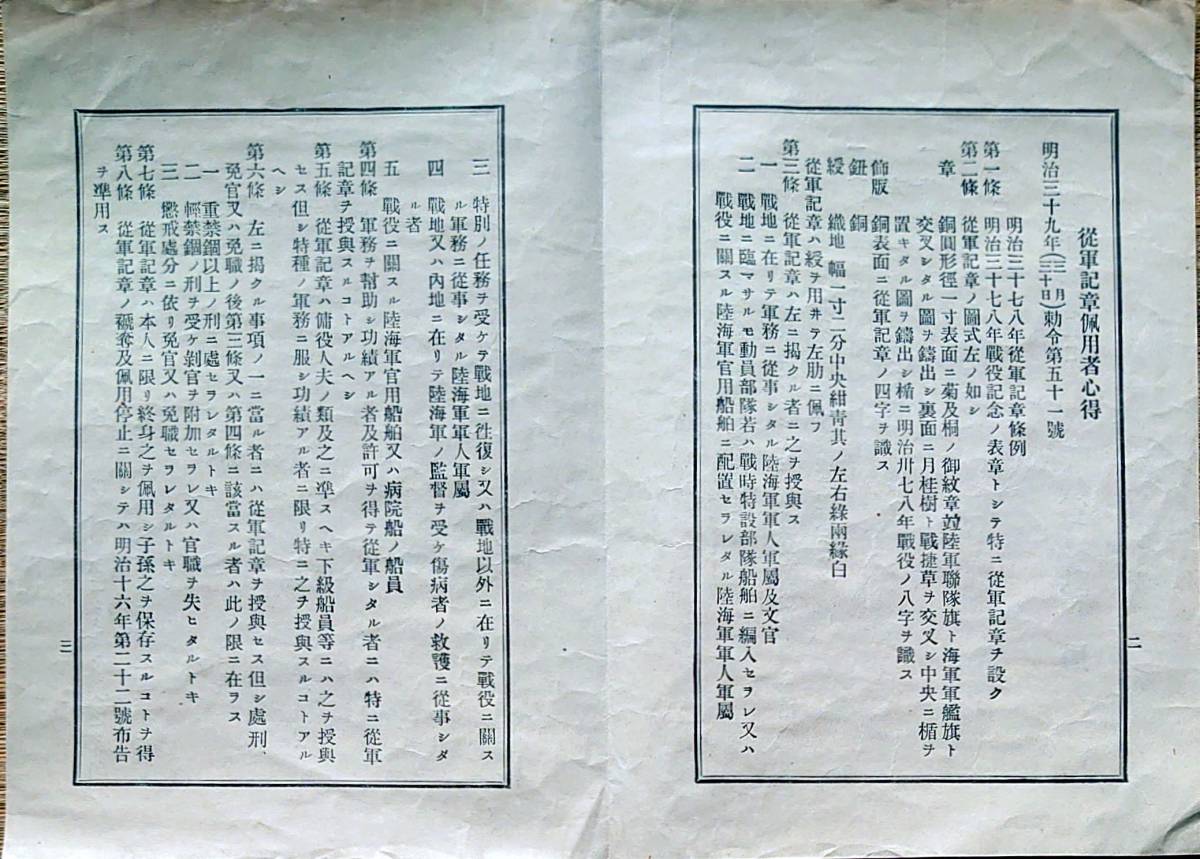 二
從軍記章佩用者心得
明治三十九年(三月三十日)勅令第五十一號
明治三十七八年從軍記章條例
第一條　明治三十七八年戰役記念ノ表章トシテ特ニ從軍記章ヲ設ク
第二條　從軍記章ノ圖式左ノ如シ
章　銅圓形徑一寸表面ニ菊及桐ノ御紋章竝陸軍聯隊旗ト海軍軍艦旗ト
交叉シタル圖ヲ鑄出シ裏面ニ月桂樹ト戰捷草ヲ交叉シ中央ニ楯ヲ
置キタル圖ヲ鑄出シ楯ニ明治卅七八年戰役ノ八字ヲ識ス
飾版　銅表面ニ從軍記章ノ四字ヲ識ス
鈕　銅
綬　織地　幅一寸二分中央紺靑其ノ左右綠兩緣白
從軍記章ハ綬ヲ用井テ左肋ニ佩フ
第三條　從軍記章ハ左ニ揭クル者ニ之ヲ授與ス
一　戰地ニ在リテ軍務ニ從事シタル陸海軍軍人軍屬及文官
二　戰地ニ臨マサルモ動員部隊若ハ戰時特設部隊船舶ニ編入セラレ又ハ
戰役ニ關スル陸海軍官用船舶ニ配置セラレタル陸海軍軍人軍屬
三　特別ノ任務ヲ受ケテ戰地ニ往復シ又ハ戰地以外ニ在リテ戰役ニ關ス
ル軍務ニ從事シタル陸海軍軍人軍屬
四　戰地又ハ內地ニ在リテ陸海軍ノ監督ヲ受ケ傷病者ノ救護ニ從事シタ
ル者
五　戰役ニ關スル陸海軍官用船舶又ハ病院船ノ船員
第四條　軍務ヲ幇助シ功績アル者及許可ヲ得テ從軍シタル者ニハ特ニ從軍
記章ヲ授與スルコトアルヘシ
第五條　從軍記章ハ傭役人夫ノ類及之ニ準スヘキ下級船員等ニハ之ヲ授與
セス但シ特種ノ軍務ニ服シ功績アル者ニ限リ特ニ之ヲ授與スルコトアル
ヘシ
第六條　左ニ揭クル事項ノ一ニ當ル者ニハ從軍記章ヲ授與セス但シ處刑、
免官又ハ免職ノ後第三條又ハ第四條ニ該當スル者ハ此ノ限ニ在ラス
一　重禁錮以上ノ刑ニ處セラレタルトキ
二　輕禁錮ノ刑ヲ受ケ剝官ヲ附加セラレ又ハ官職ヲ失ヒタルトキ
三　懲戒處分ニ依リ免官又ハ免職セラレタルトキ
第七條　從軍記章ハ本人ニ限リ終身之ヲ佩用シ子孫之ヲ保存スルコトヲ得
第八條　從軍記章ノ褫奪及佩用停止ニ關シテハ明治十六年第二十二號布告
ヲ準用ス
三